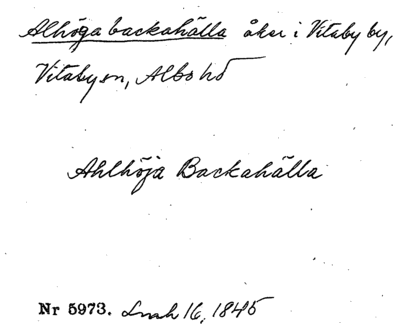 Alhöga backahälla åker i Vitaby by,
Vitaby sn, Albo hd
Ahlhöja Backahälla
Nr 5973. Lmh 16, 1845